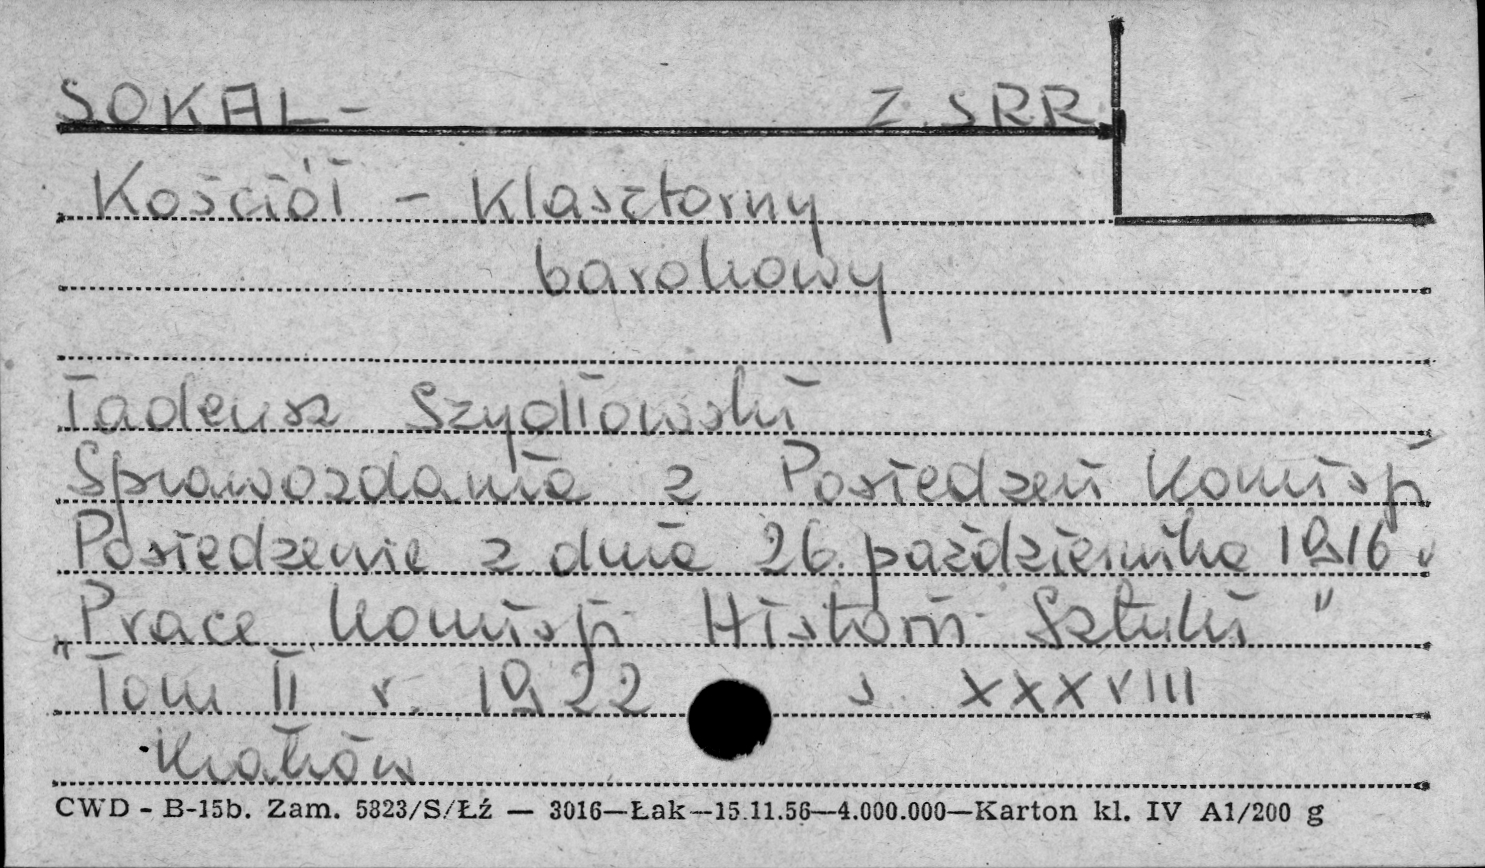 SOKAL - Z.SRR
Kościół - Klasztorny
barokowy
Tadeusz Szydłowski
Sprawozdania z Posiedzeń Komisji
Posiedzenie z dnia 26. października 1916 r
"Prace Komisji Historii Sztuki"
Tom II r. 1922 s. XXXVIII
Kraków
CWD - B-15b. Zam. 5823/S/Łź — 3016—Łak—15.11.56—4.000.000—Karton kl. IV A1/200 g